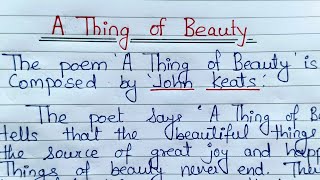 A Thing of Beauty
The poem 'A Thing of Beauty' is
Composed by 'John Keats'.
The poet says 'A Thing of
tells that the beautiful things
the source of great joy and
Things of beauty never end.